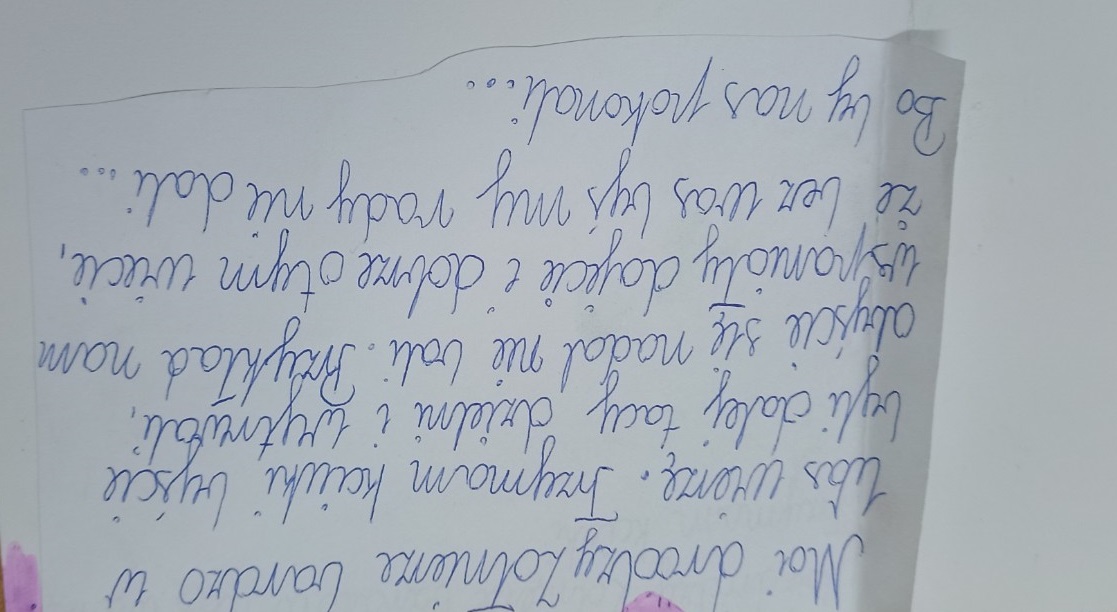 Moi drodzy Żołnierze bardzo w
Was wierzę. Trzymam kciuki byście
byli dalej tacy dzielni i wytrwali,
abyście się nadal nie bali. Przykład nam
wspaniały dajecie i dobrze o tym wiecie,
że bez was byś my rady nie dali...
Bo by nas pokonali...